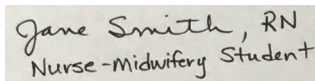 Jane Smith, RN
Nurse-Midwifery Student